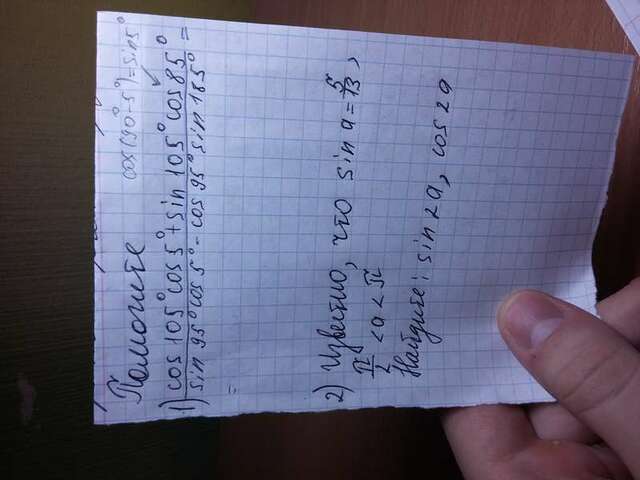 Помогите
cos(90°-5°)=sin5°
1) cos 105° cos 5° + sin 105° cos 85° =
sin 95° cos 5° - cos 95° sin 185°
=
2) Известно, что sin a = 5/13,
π/2 < a < π
Найдите: sin 2a, cos 2a